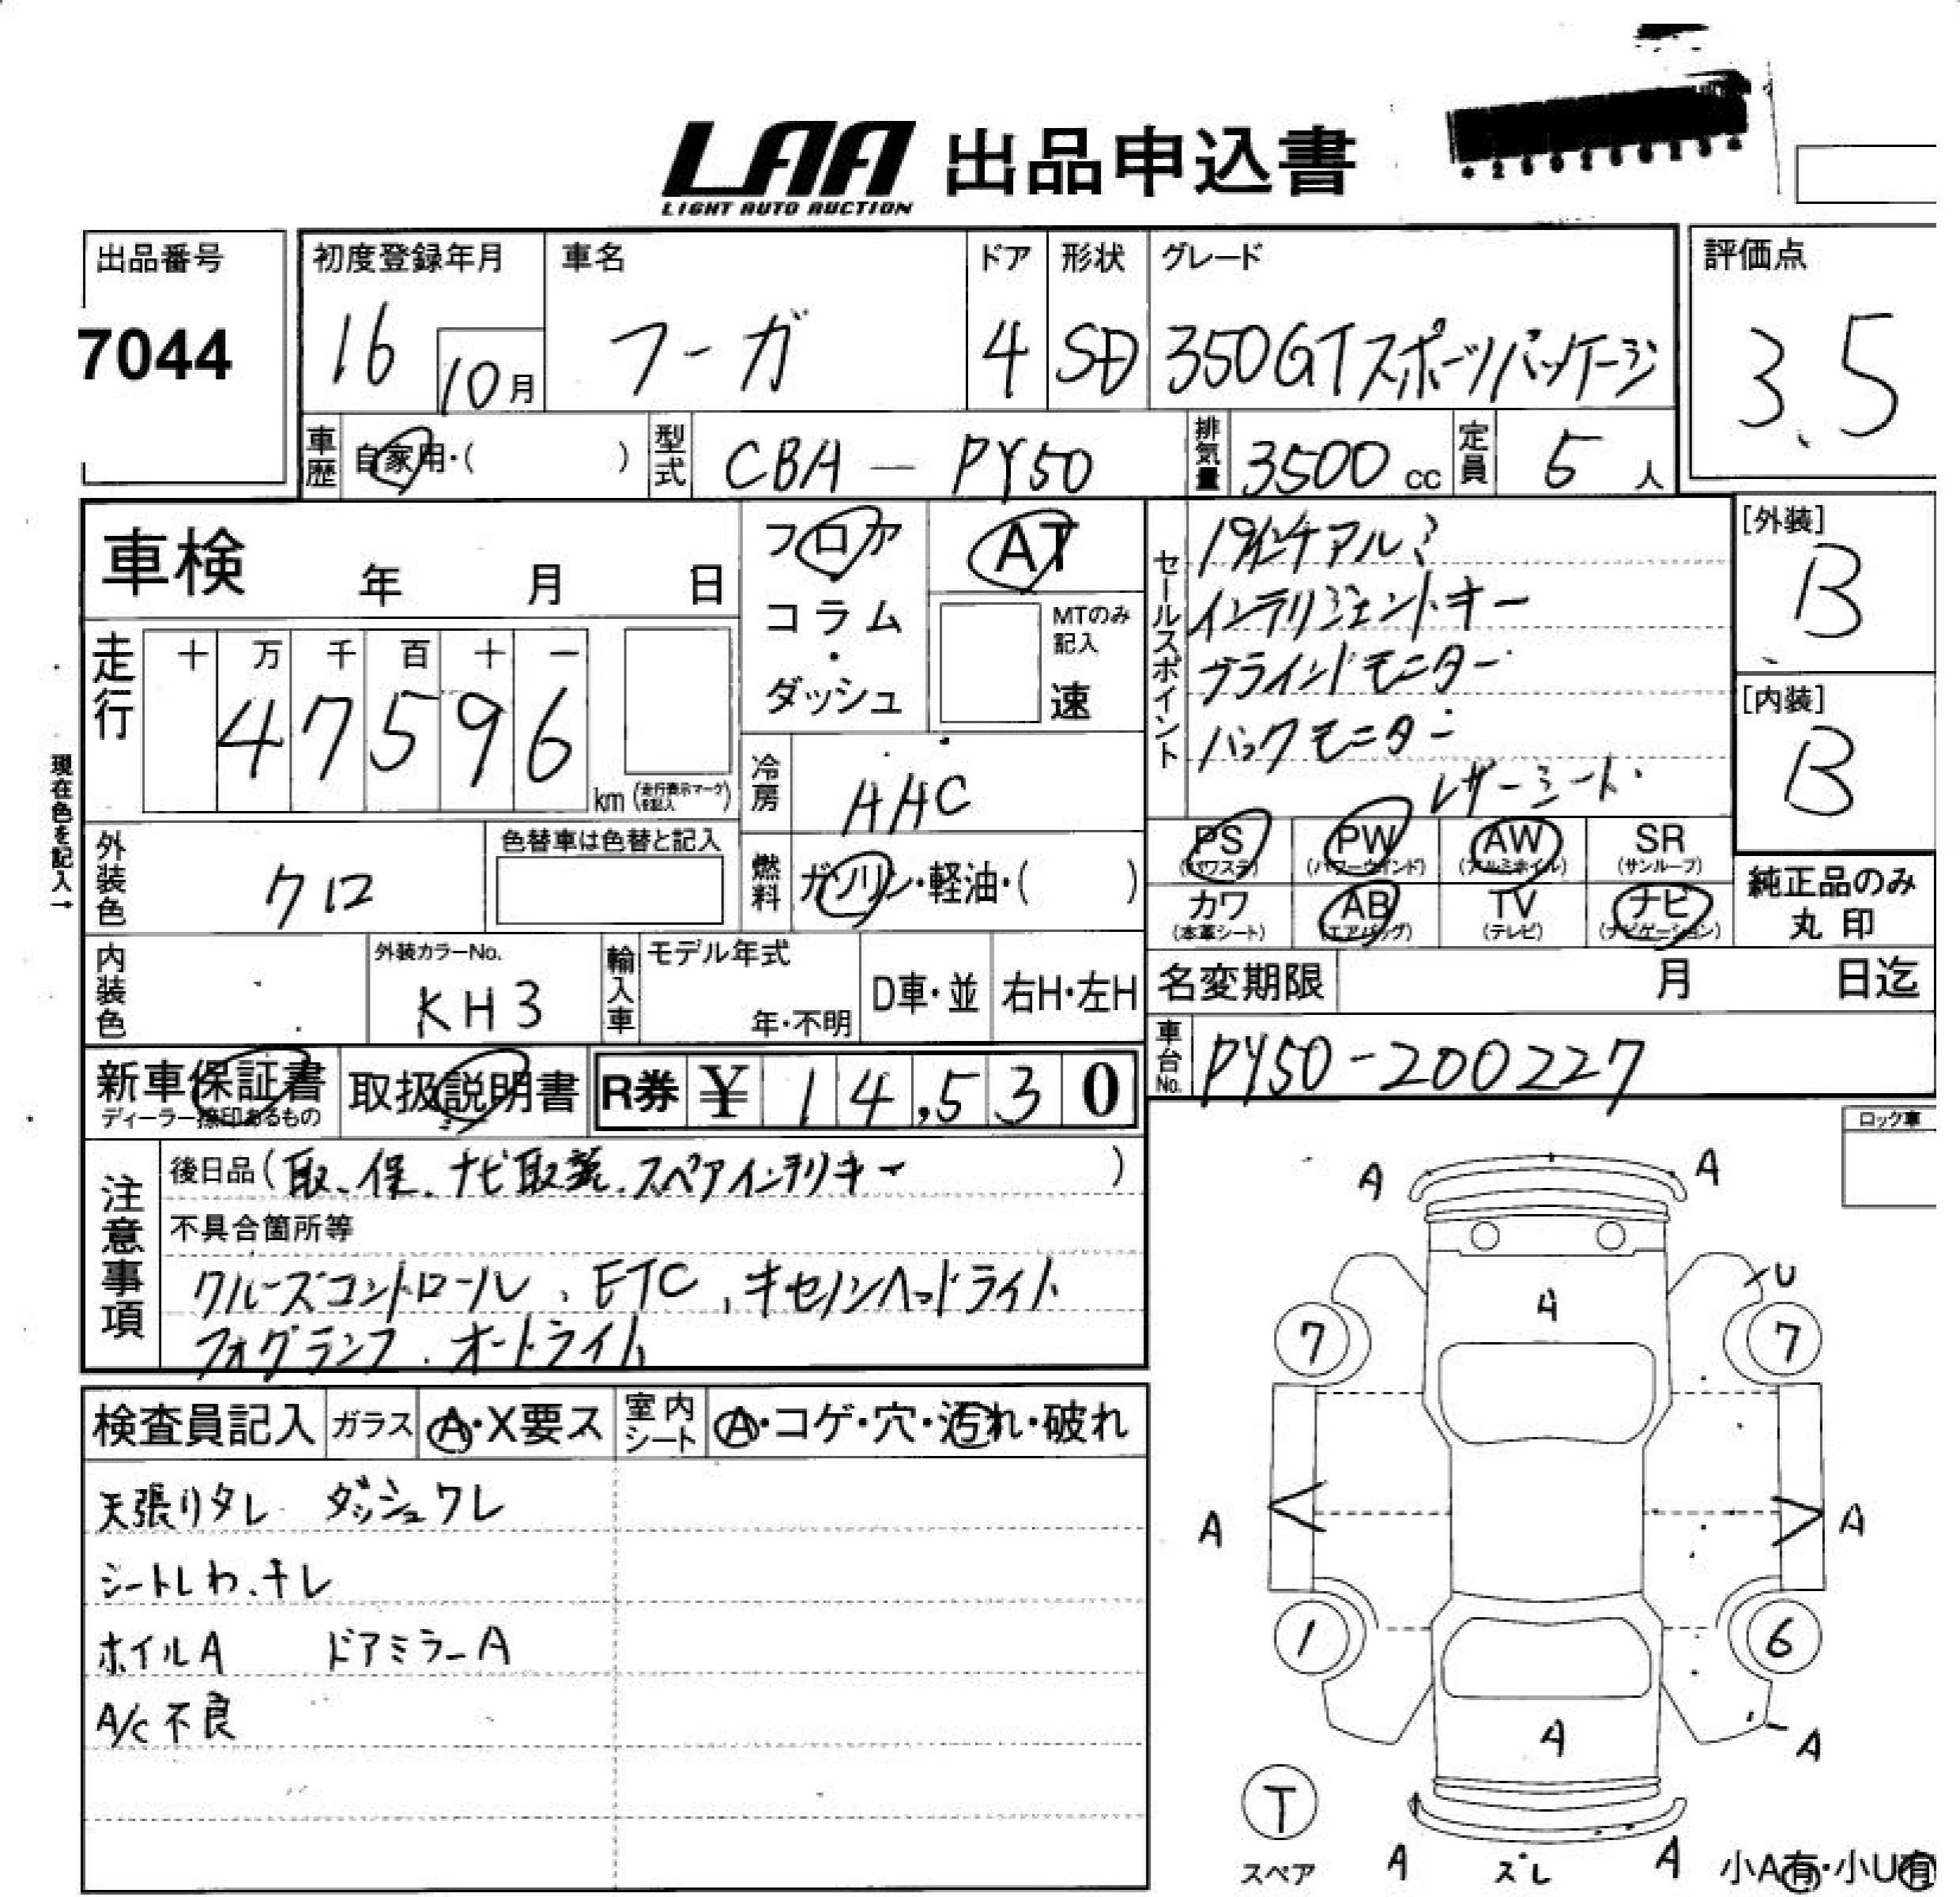 LAA 出品申込書
LIGHT AUTO AUCTION
出品番号
7044
初度登録年月
16
10月
車名
フーガ
ドア
4
形状
SD
グレード
350GTスポーツパッケージ
評価点
3.5
車歴
自家用・( )
型式
CBA — PY50
排気量
3500 cc
定員
5 人
車検 年 月 日
フロア・コラム・ダッシュ
AT
MTのみ記入
速
セールスポイント
19インチアルミ
インテリジェントキー
ブラインドモニター
バックモニター
レザーシート
[外装]
B
[内装]
B
走行
十 万 千 百 十 一
4 7 5 9 6
km (走行表示マークを記入)
現在色を記入→
冷房
AAC
外装色
クロ
色替車は色替と記入
燃料
ガソリン・軽油・( )
PS (パワステ)
PW (パワーウインド)
AW (アルミホイル)
SR (サンルーフ)
カワ (本革シート)
AB (エアバッグ)
TV (テレビ)
ナビ (ナビゲーション)
純正品のみ
丸印
内装色
外装カラーNo.
KH3
輸入車
モデル年式
年・不明
D車・並
右H・左H
名変期限 月 日迄
車台No.
PY50-200227
新車保証書
ディーラー捺印あるもの
取扱説明書
R券 ¥ 14,530
注意事項
後日品(取、保、ナビ取説、スペアインテリキー )
不具合箇所等
クルーズコントロール、ETC、キセノンヘッドライト
フォグランプ、オートライト
ロック車
検査員記入
ガラス
A・X要ス
室内シート
A・コゲ・穴・汚れ・破れ
天張りタレ ダッシュワレ
シートしわ、キレ
ホイルA ドアミラーA
A/C不良
A
A
U
A
7
7
A
A
1
6
A
A
T
スペア
A
ズレ
A
小A有・小U有